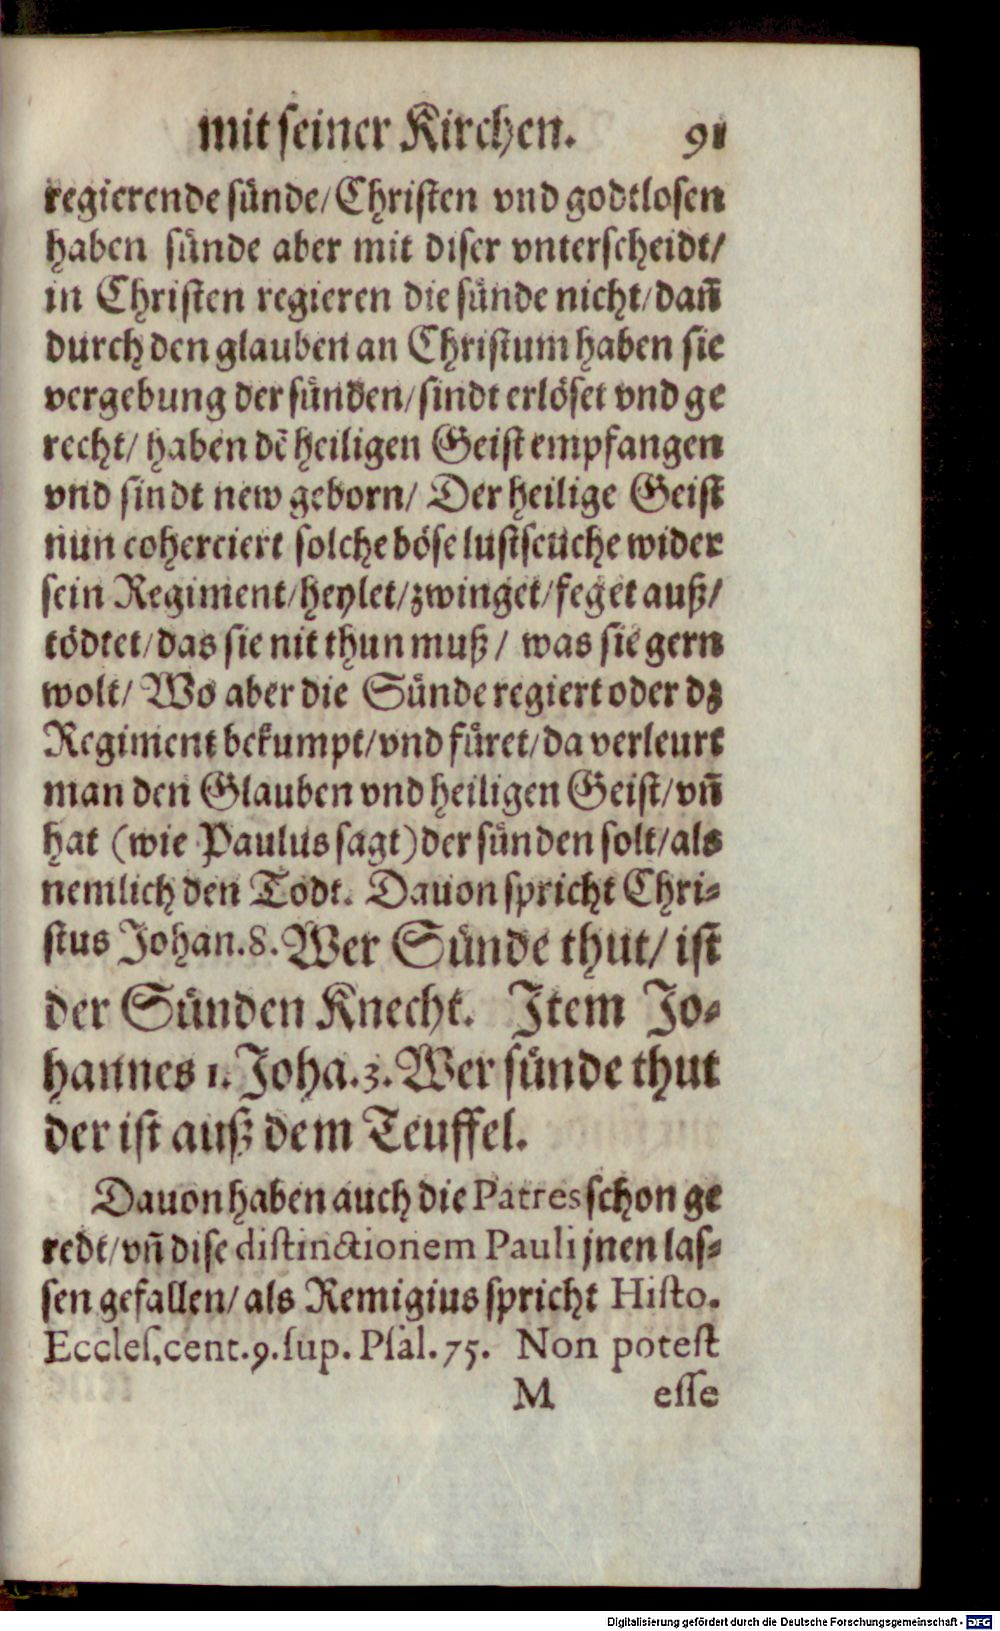 mit seiner Kirchen. 91
regierende sünde/ Christen vnd godtlosen
haben sünde aber mit diser vnterscheidt/
in Christen regieren die sünde nicht/ dañ
durch den glauben an Christum haben sie
vergebung der sünden/ sindt erlöset vnd ge
recht/ haben dē heiligen Geist empfangen
vnd sindt new geborn/ Der heilige Geist
nun coherciert solche böse lustseuche wider
sein Regiment/ heylet/ zwinget/ feget auß/
tödtet/ das sie nit thun muß/ was sie gern
wolt/ Wo aber die Sünde regiert oder dz
Regiment bekumpt/ vnd füret/ da verleurt
man den Glauben vnd heiligen Geist/ vñ
hat (wie Paulus sagt) der sünden solt/ als
nemlich den Todt. Dauon spricht Chri-
stus Johan. 8. Wer Sünde thut/ ist
der Sünden Knecht. Item Jo-
hannes 1. Joha. 3. Wer sünde thut
der ist auß dem Teuffel.
Dauon haben auch die Patres schon ge
redt/ vñ dise distinctionem Pauli jnen las-
sen gefallen/ als Remigius spricht Histo.
Eccles. cent. 9. sup. Psal. 75. Non potest
M esse
Digitalisierung gefördert durch die Deutsche Forschungsgemeinschaft - DFG